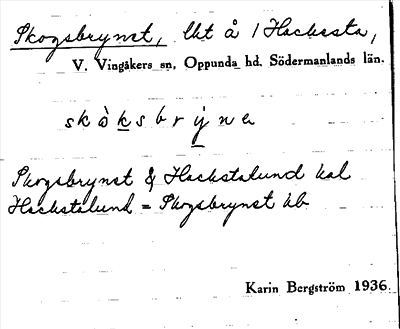 Skogsbrynet, lht å 1 Hacksta,
V. Vingåkers sn, Oppunda hd. Södermanlands län.
skòksbrýne
Skogsbrynet & Hackstalund kal
Hackstalund = Skogsbrynet kb
Karin Bergström 1936.